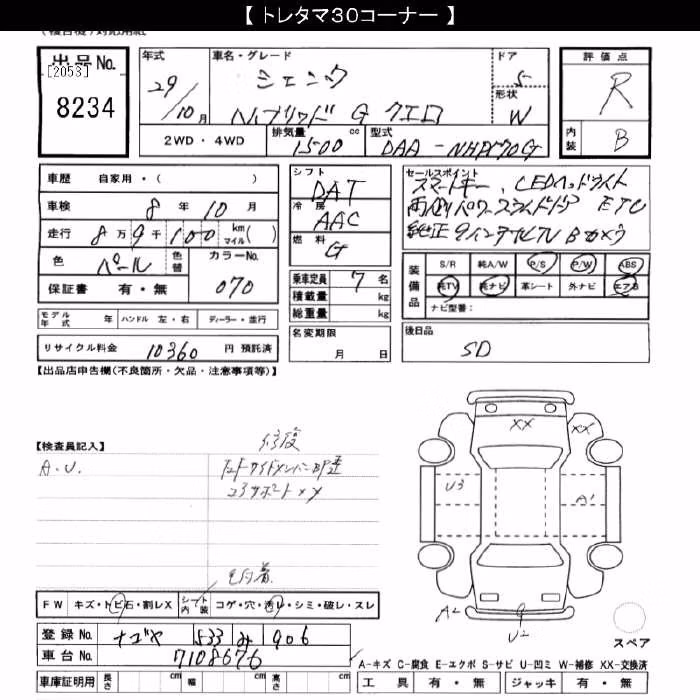 【 トレタマ30コーナー 】
出品No.
[2053]
8234
年式
29/10月
車名・グレード
シエンタ
ハイブリッド G クエロ
ドア
5
形状
W
評価点
R
内装
B
2WD・4WD
排気量
1500 cc
型式
DAA-NHP170G
車歴 自家用・( )
車検 8年 10月
走行 8万9千100 km マイル( )
色 パール 色替
カラーNo.
070
保証書 有・無
シフト
DAT
冷房
AAC
燃料
G
乗車定員 7名
積載量 kg
総重量 kg
セールスポイント
スマートキー、LEDヘッドライト
両側パワースライドドア ETC
純正9インチナビTV Bカメラ
装備品
S/R 純A/W P/S P/W ABS
純TV 純ナビ 革シート 外ナビ エアB
ナビ型番:
モデル年式 年 ハンドル 左・右 ディーラー・並行
リサイクル料金 10360 円 預託済
名変期限
月 日
後日品
SD
【出品店申告欄(不良箇所・欠品・注意事項等)】
【検査員記入】
修復
A.U.
コアサポートXX
XX
XX
U3
A1
A2
U2
スペア
FW キズ・トビ石・割レX シート内装 コゲ・穴・汚レ・シミ・破レ・スレ
登録No. ナゴヤ 533 み 906
車台No. 7108676
A-キズ C-腐食 E-エクボ S-サビ U-凹ミ W-補修 XX-交換済
車庫証明用 長さ cm 幅 cm 高さ cm
工具 有・無 ジャッキ 有・無